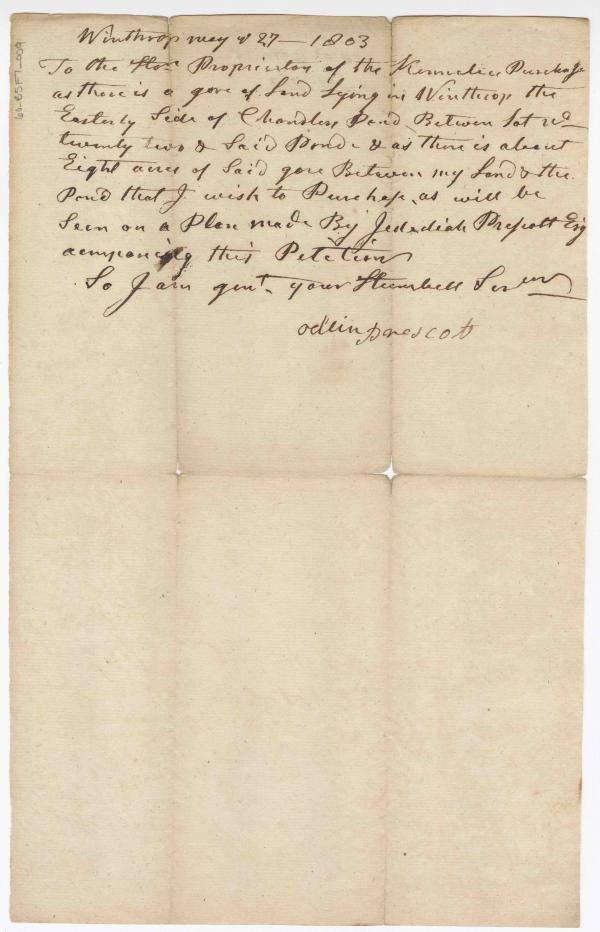 Winthrop may ye 27 — 1803
To the Hon Proprietors of the Kennebec Purchase
as there is a gore of Land Lying in Winthrop the
Easterly Side of Chandlers Pond Between Lot No
twenty two & Said Ponde & as there is about
Eight acres of Said gore Between my Land & the
Pond that I wish to Purchase, as will be
Seen on a Plan made By Jedediah Prescott Esq
acmpaniing this Petetion
So I am gent. your Humbell Servnt
odlin prescott